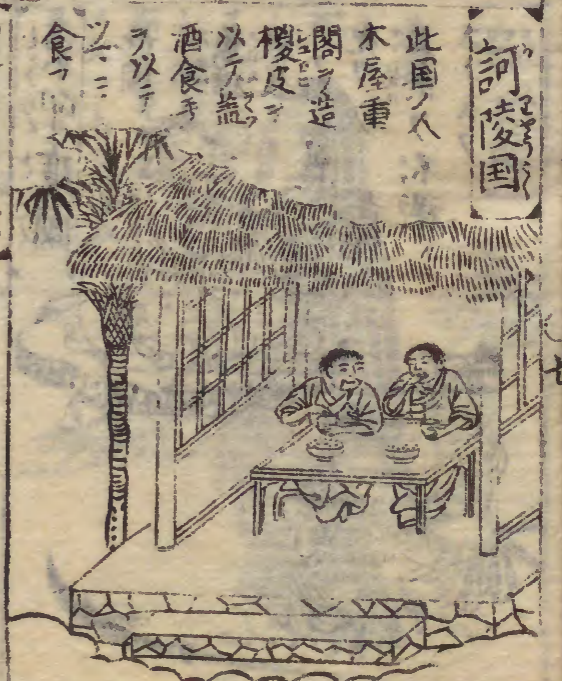 訶陵国
此国ノ人
木屋重
閣ヲ造
椶皮ヲ
以テ蓋
酒食
ヲ以テ
食フ